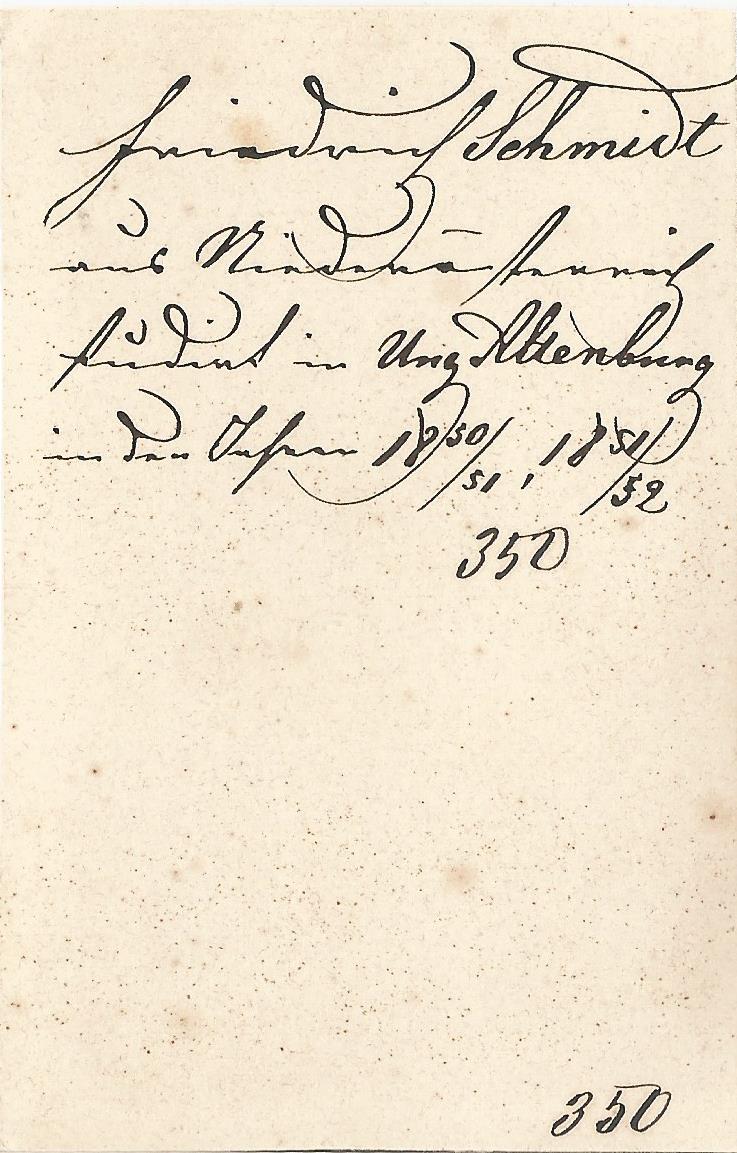 Friedrich Schmidt
aus Niederösterreich
studirt in Ung Altenburg
in den Jahren 1850/51, 1851/52
350
350